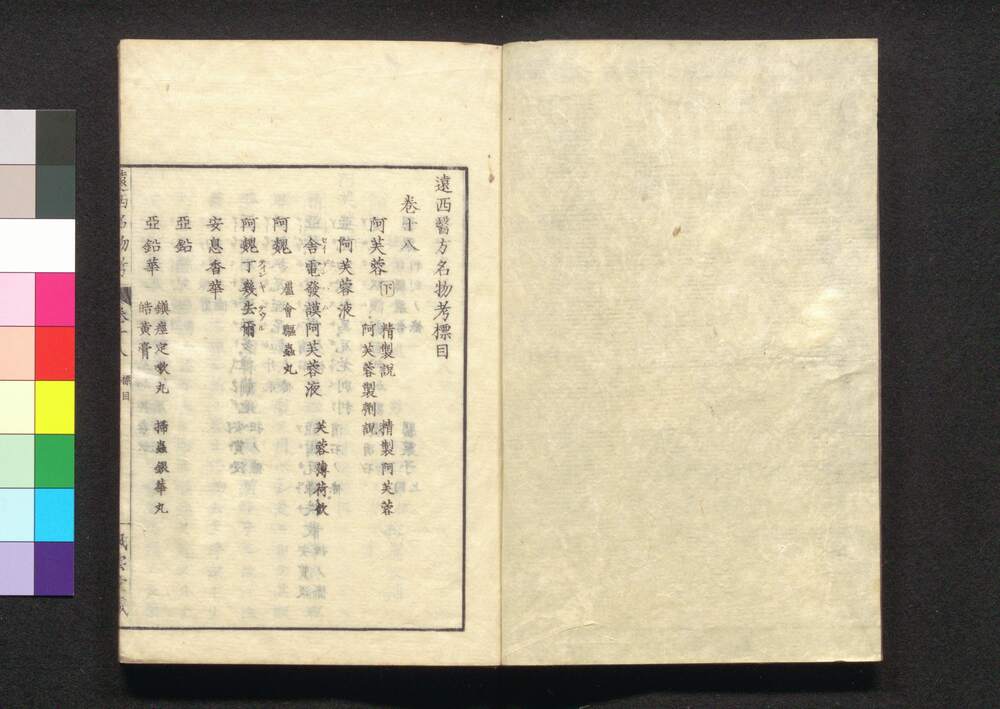 遠西醫方名物考標目
卷十八
阿芙蓉 下 精製說 精製阿芙蓉
阿芙蓉製劑說
阿芙蓉液
舎電發謨阿芙蓉液 芙蓉薄荷飲
阿魏 蘆會驅蟲丸
阿魏丁幾去爾
安息香華
亞鉛
亞鉛華 鎭痙定欬丸 掃蟲銀華丸
皓黃膏
遠西名物考 卷十八 標目